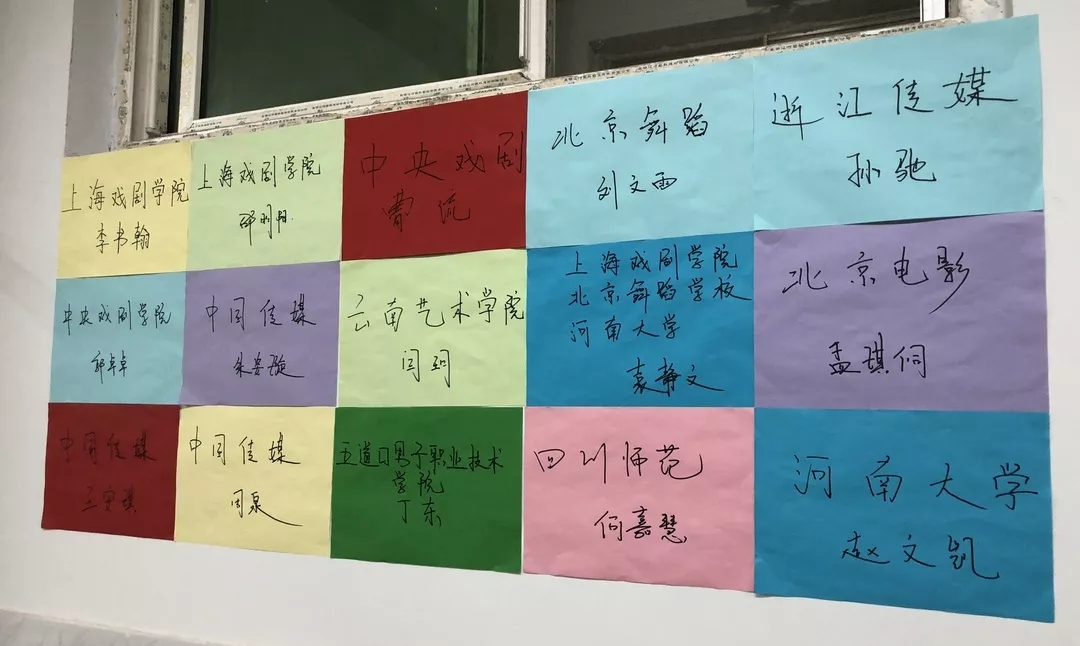 上海戏剧学院
李书翰
上海戏剧学院
邵明阳
中央戏剧
曹流
北京舞蹈
刘文雨
浙江传媒
孙驰
中央戏剧学院
邱卓卓
中国传媒
朱安璇
云南艺术学院
闫翔
上海戏剧学院
北京舞蹈学校
河南大学
袁静文
北京电影
孟琪侗
中国传媒
中国传媒
周泉
五道口男子职业技术
学院
丁东
四川师范
何嘉慧
河南大学
赵文凯